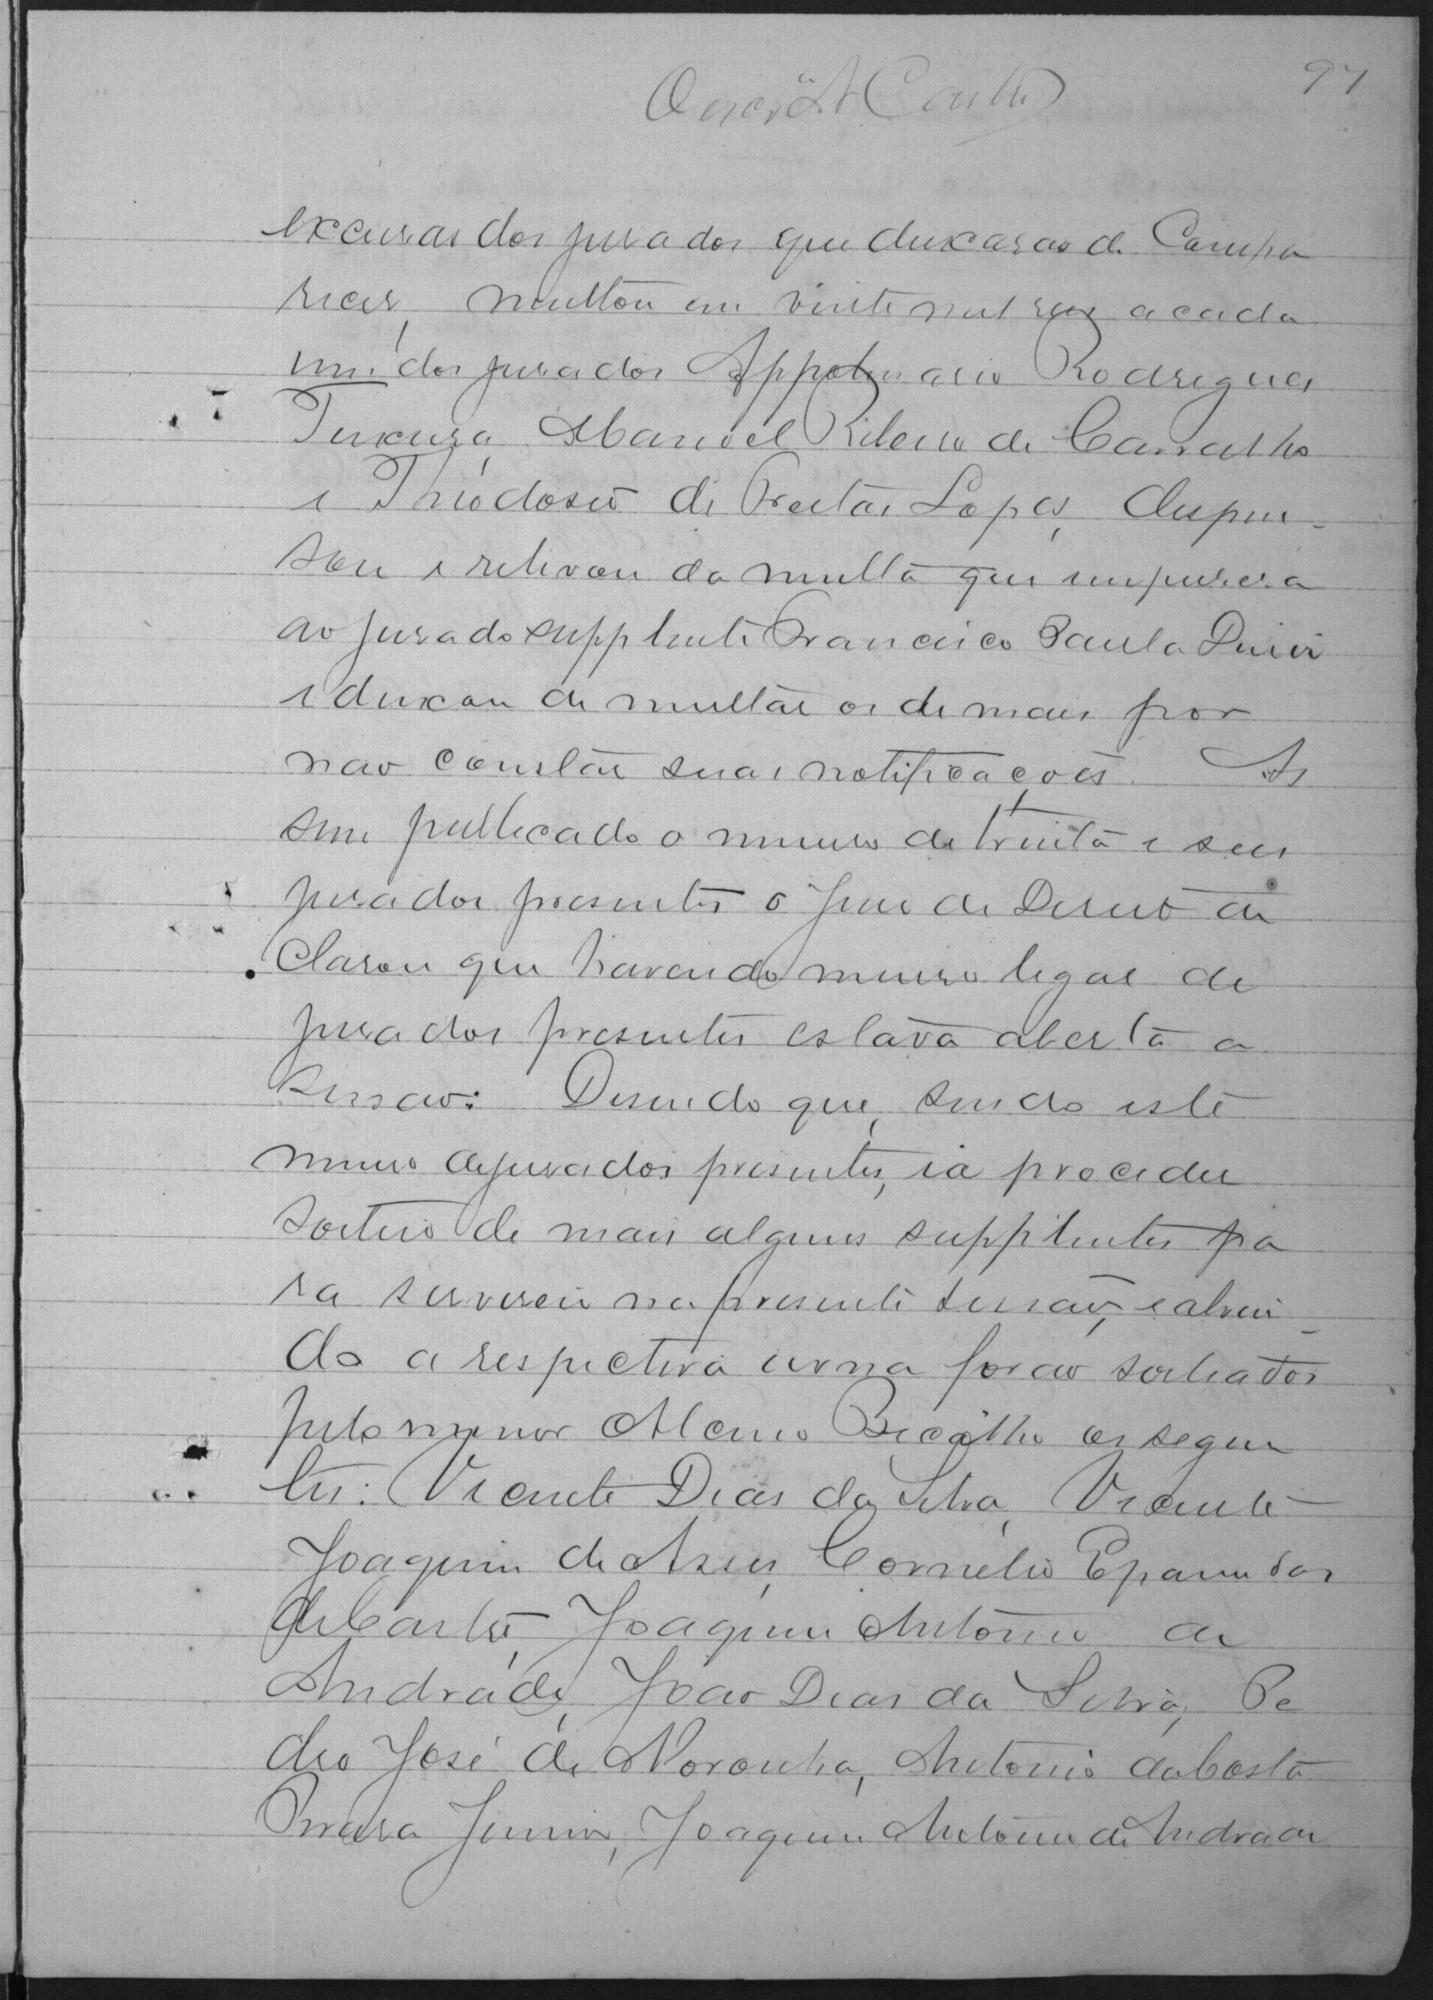 97
excusas dos jurados que deixarão de Compa
recer, multou em vinte mil reis a cada
um dos jurados Appolinario Rodrigues
Teixeira, Manoel Ribeiro de Carvalho
e Théodosio de Freitas Lopes, dispen-
sou e relevou da multa que impusera
ao jurado supplente Francisco Paula Diniz
e deixou de multar os demais por
não constar suas notificações. As
sim publicado o numero de trinta e seis
jurados presentes o Juiz de Direito de
clarou que havendo numero legal de
jurados presentes estava aberta a
sessão: Disendo que, sendo este
numero de jurados presentes, ia proceder
sorteio de mais alguns supplentes pa
ra servirem na presente sessão, e abrin-
do a respectiva urna forão sorteados
pelo menor Alcino Bicalho os seguin
tes: Vicente Dias da Silva, Vicente
Joaquim de Assis, Cornelio Epamindas
de Castro, Joaquim Antonio de
Andrade, João Dias da Silva, Pe
dro José de Noronha, Antonio da Costa
Junior, Joaquim Antonio de Andrade